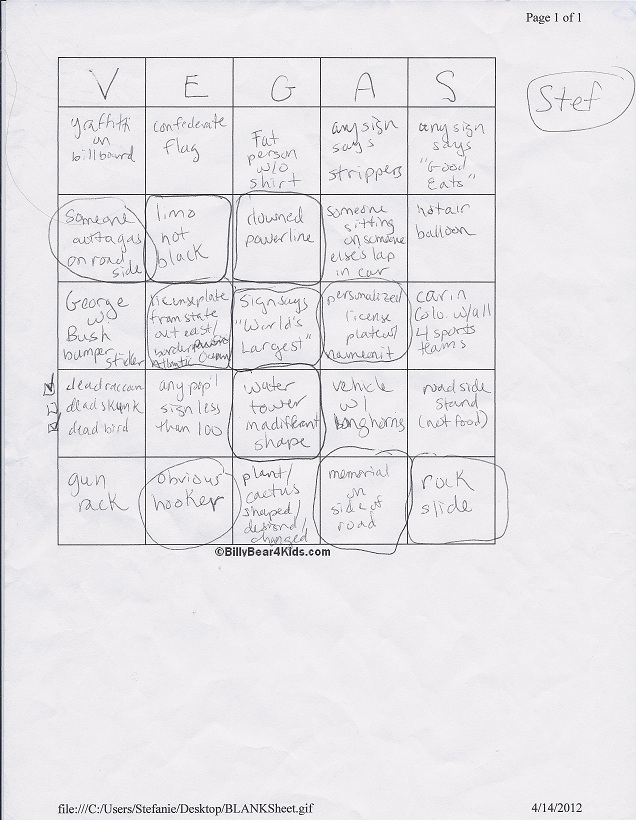 Page 1 of 1
Stef
V E G A S
graffiti
on
billboard
confederate
flag
Fat
person
w/o
shirt
any sign
says
strippers
any sign
says
"Good
Eats"
someone
outta gas
on road
side
limo
not
black
downed
powerline
someone
sitting
on someone
elses lap
in car
hot air
balloon
George
W
Bush
bumper
sticker
license plate
from state
out east/
border
Atlantic Ocean
Sign says
"World's
Largest"
personalized
license
plate w/
name on it
car in
Colo. w/ all
4 sports
teams
dead raccoon
dead skunk
dead bird
any pop'l
sign less
than 100
water
tower
in a different
shape
vehicle
w/
longhorns
road side
stand
(not food)
gun
rack
obvious
hooker
plant/
cactus
shaped/
designd/
changed
memorial
on
side of
road
rock
slide
©BillyBear4Kids.com
file:///C:/Users/Stefanie/Desktop/BLANKSheet.gif
4/14/2012